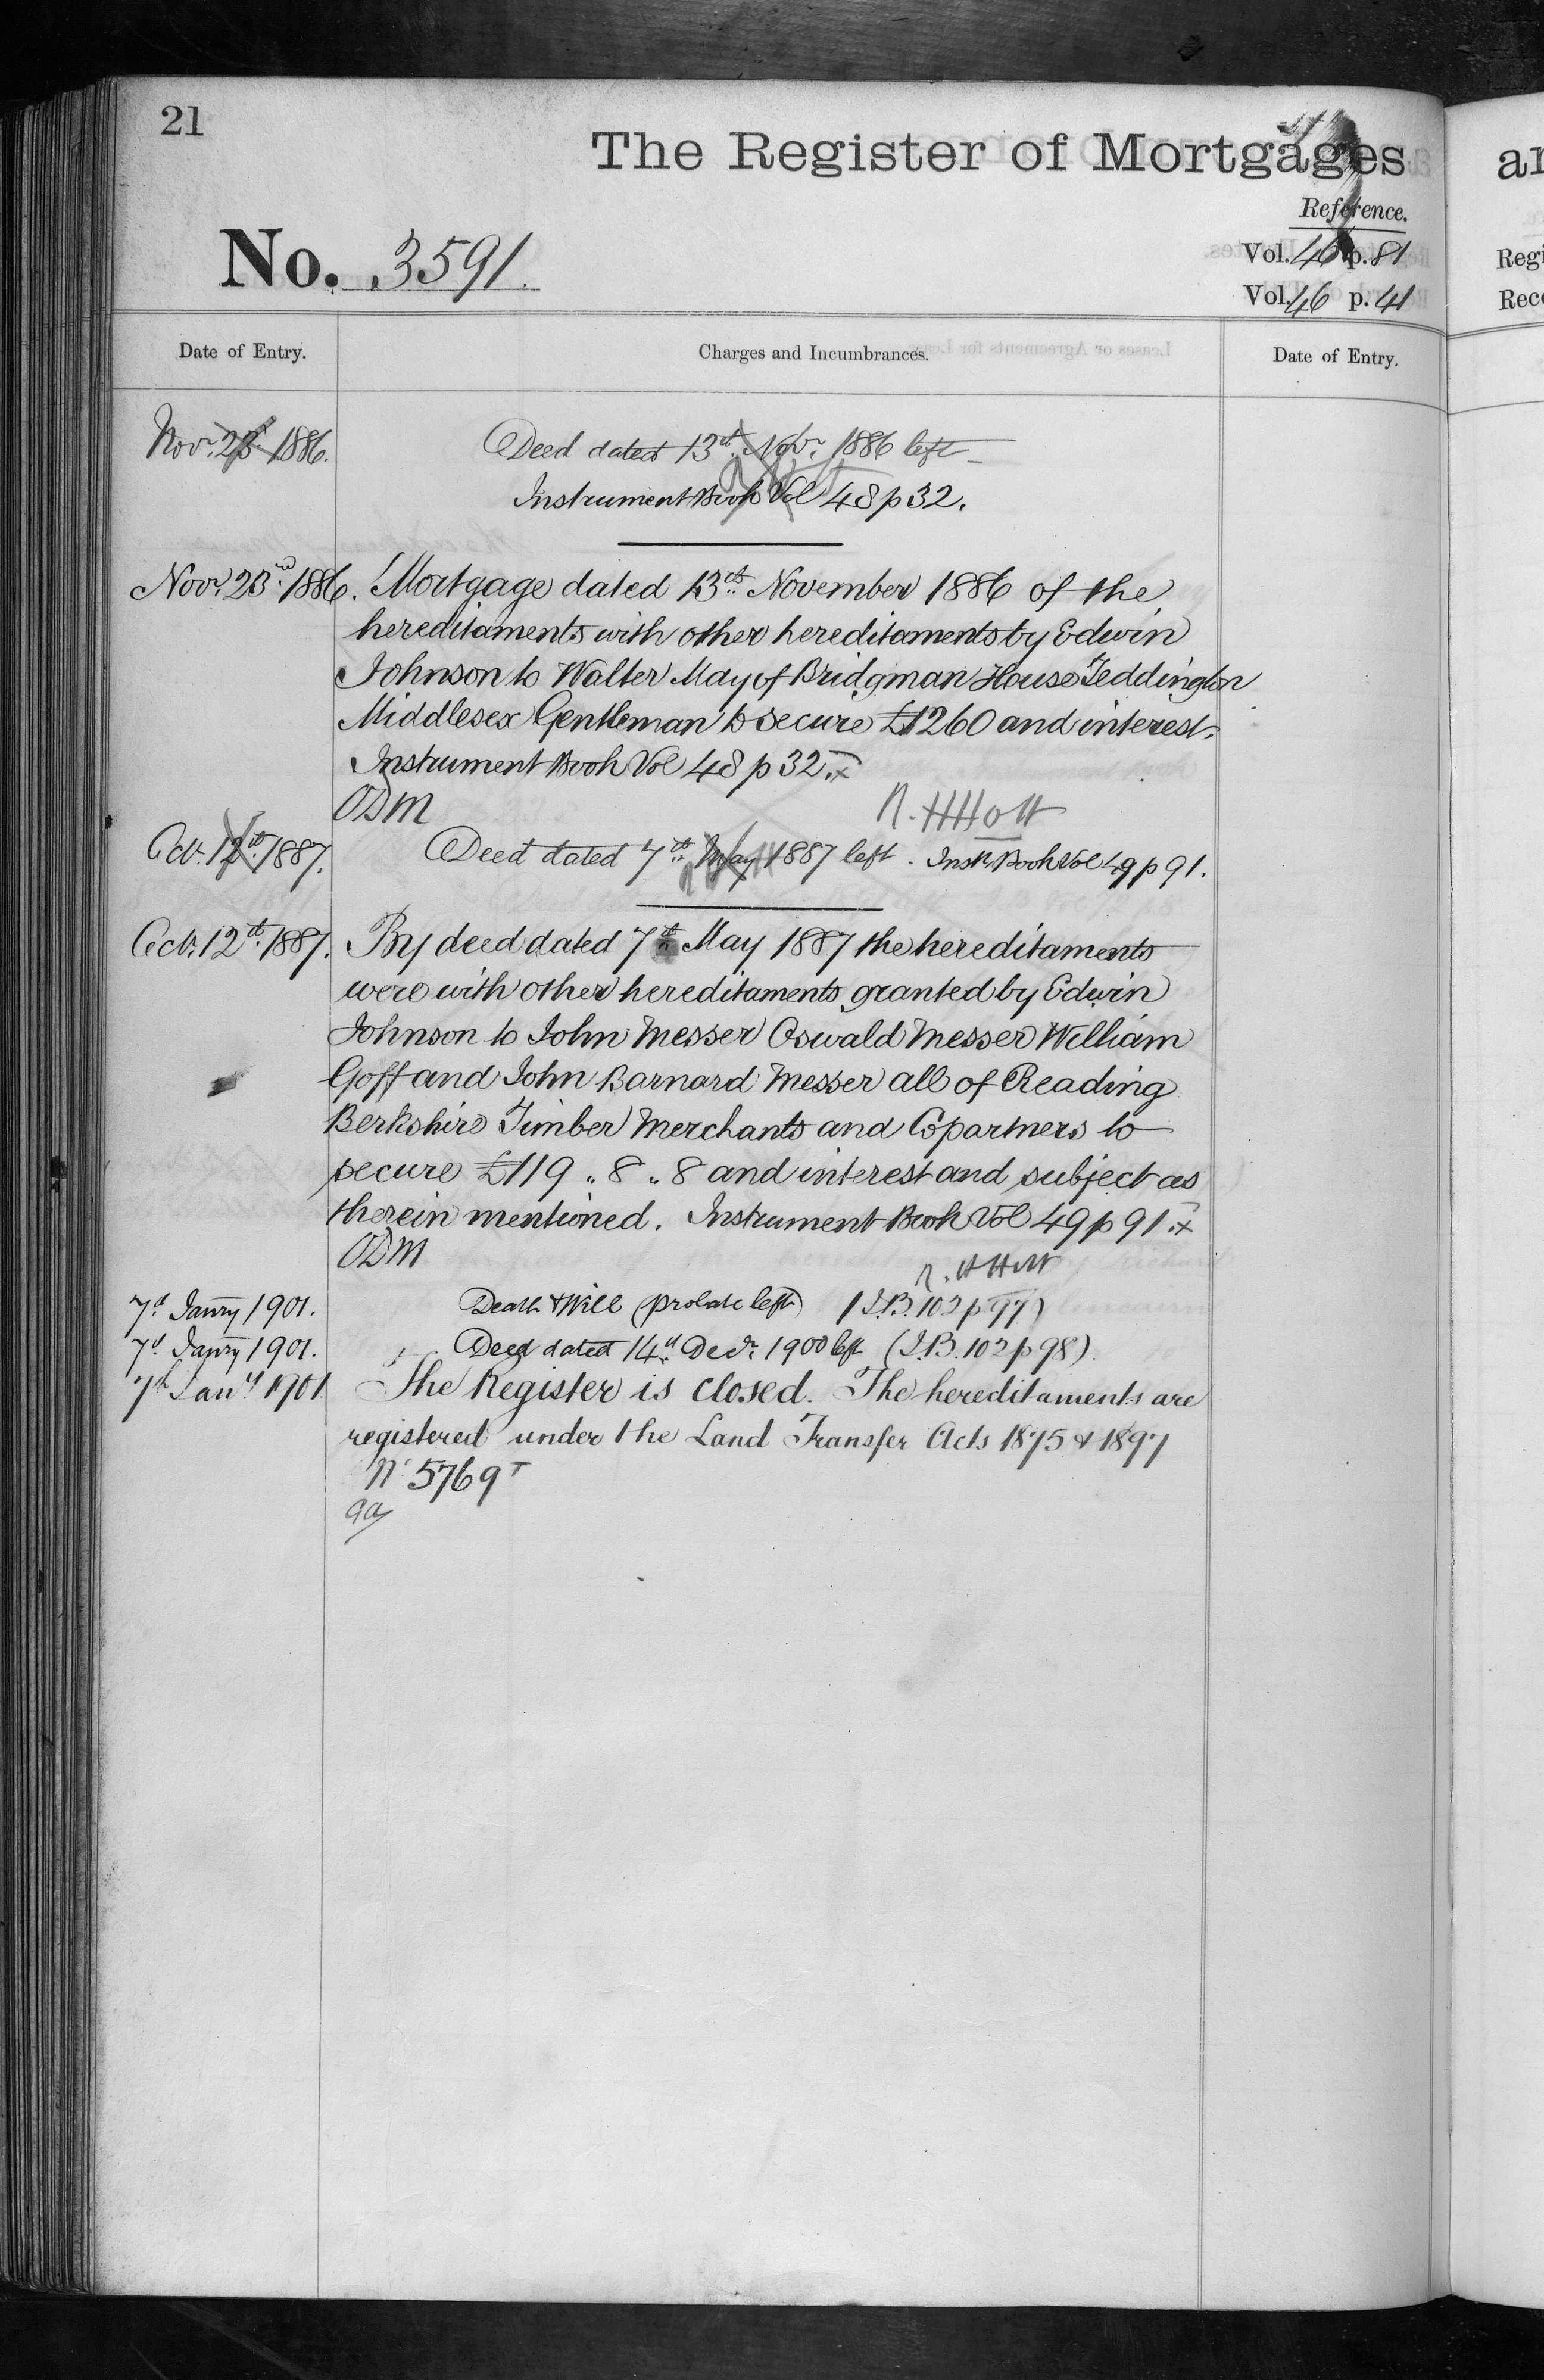 21
The Register of Mortgages
Reference.
No. 3591.
Vol. 46 p. 81
Vol. 46 p. 41
Date of Entry.
Charges and Incumbrances.
Date of Entry.
Novr. 23rd 1886.
Deed dated 13th Novr. 1886 left
Instrument Book Vol 48 p 32.
Novr. 23rd 1886.
Mortgage dated 13th November 1886 of the
hereditaments with other hereditaments by Edwin
Johnson to Walter May of Bridgman House Teddington
Middlesex Gentleman to secure £1260 and interest.
Instrument Book Vol 48 p 32. x
ODM
R. H Holt
Oct. 12th 1887.
Deed dated 7th May 1887 left. Inst. Book Vol 49 p 91.
Oct. 12th 1887.
By deed dated 7th May 1887 the hereditaments
were with other hereditaments granted by Edwin
Johnson to John Messer Oswald Messer William
Goff and John Barnard Messer all of Reading
Berkshire Timber Merchants and Copartners to
secure £119 " 8 " 8 and interest and subject as
therein mentioned. Instrument Book Vol 49 p 91. x
ODM
R. H Holt
7th Janry 1901.
Death & Will (probate left) (I.B. 102 p 97)
7th Janry 1901.
Deed dated 14th Decr. 1900 left (I.B. 102 p 98).
7th Jany 1901
The Register is closed. The hereditaments are
registered under the Land Transfer Acts 1875 & 1897
No 5769T
aa
ar
Regi
Reco